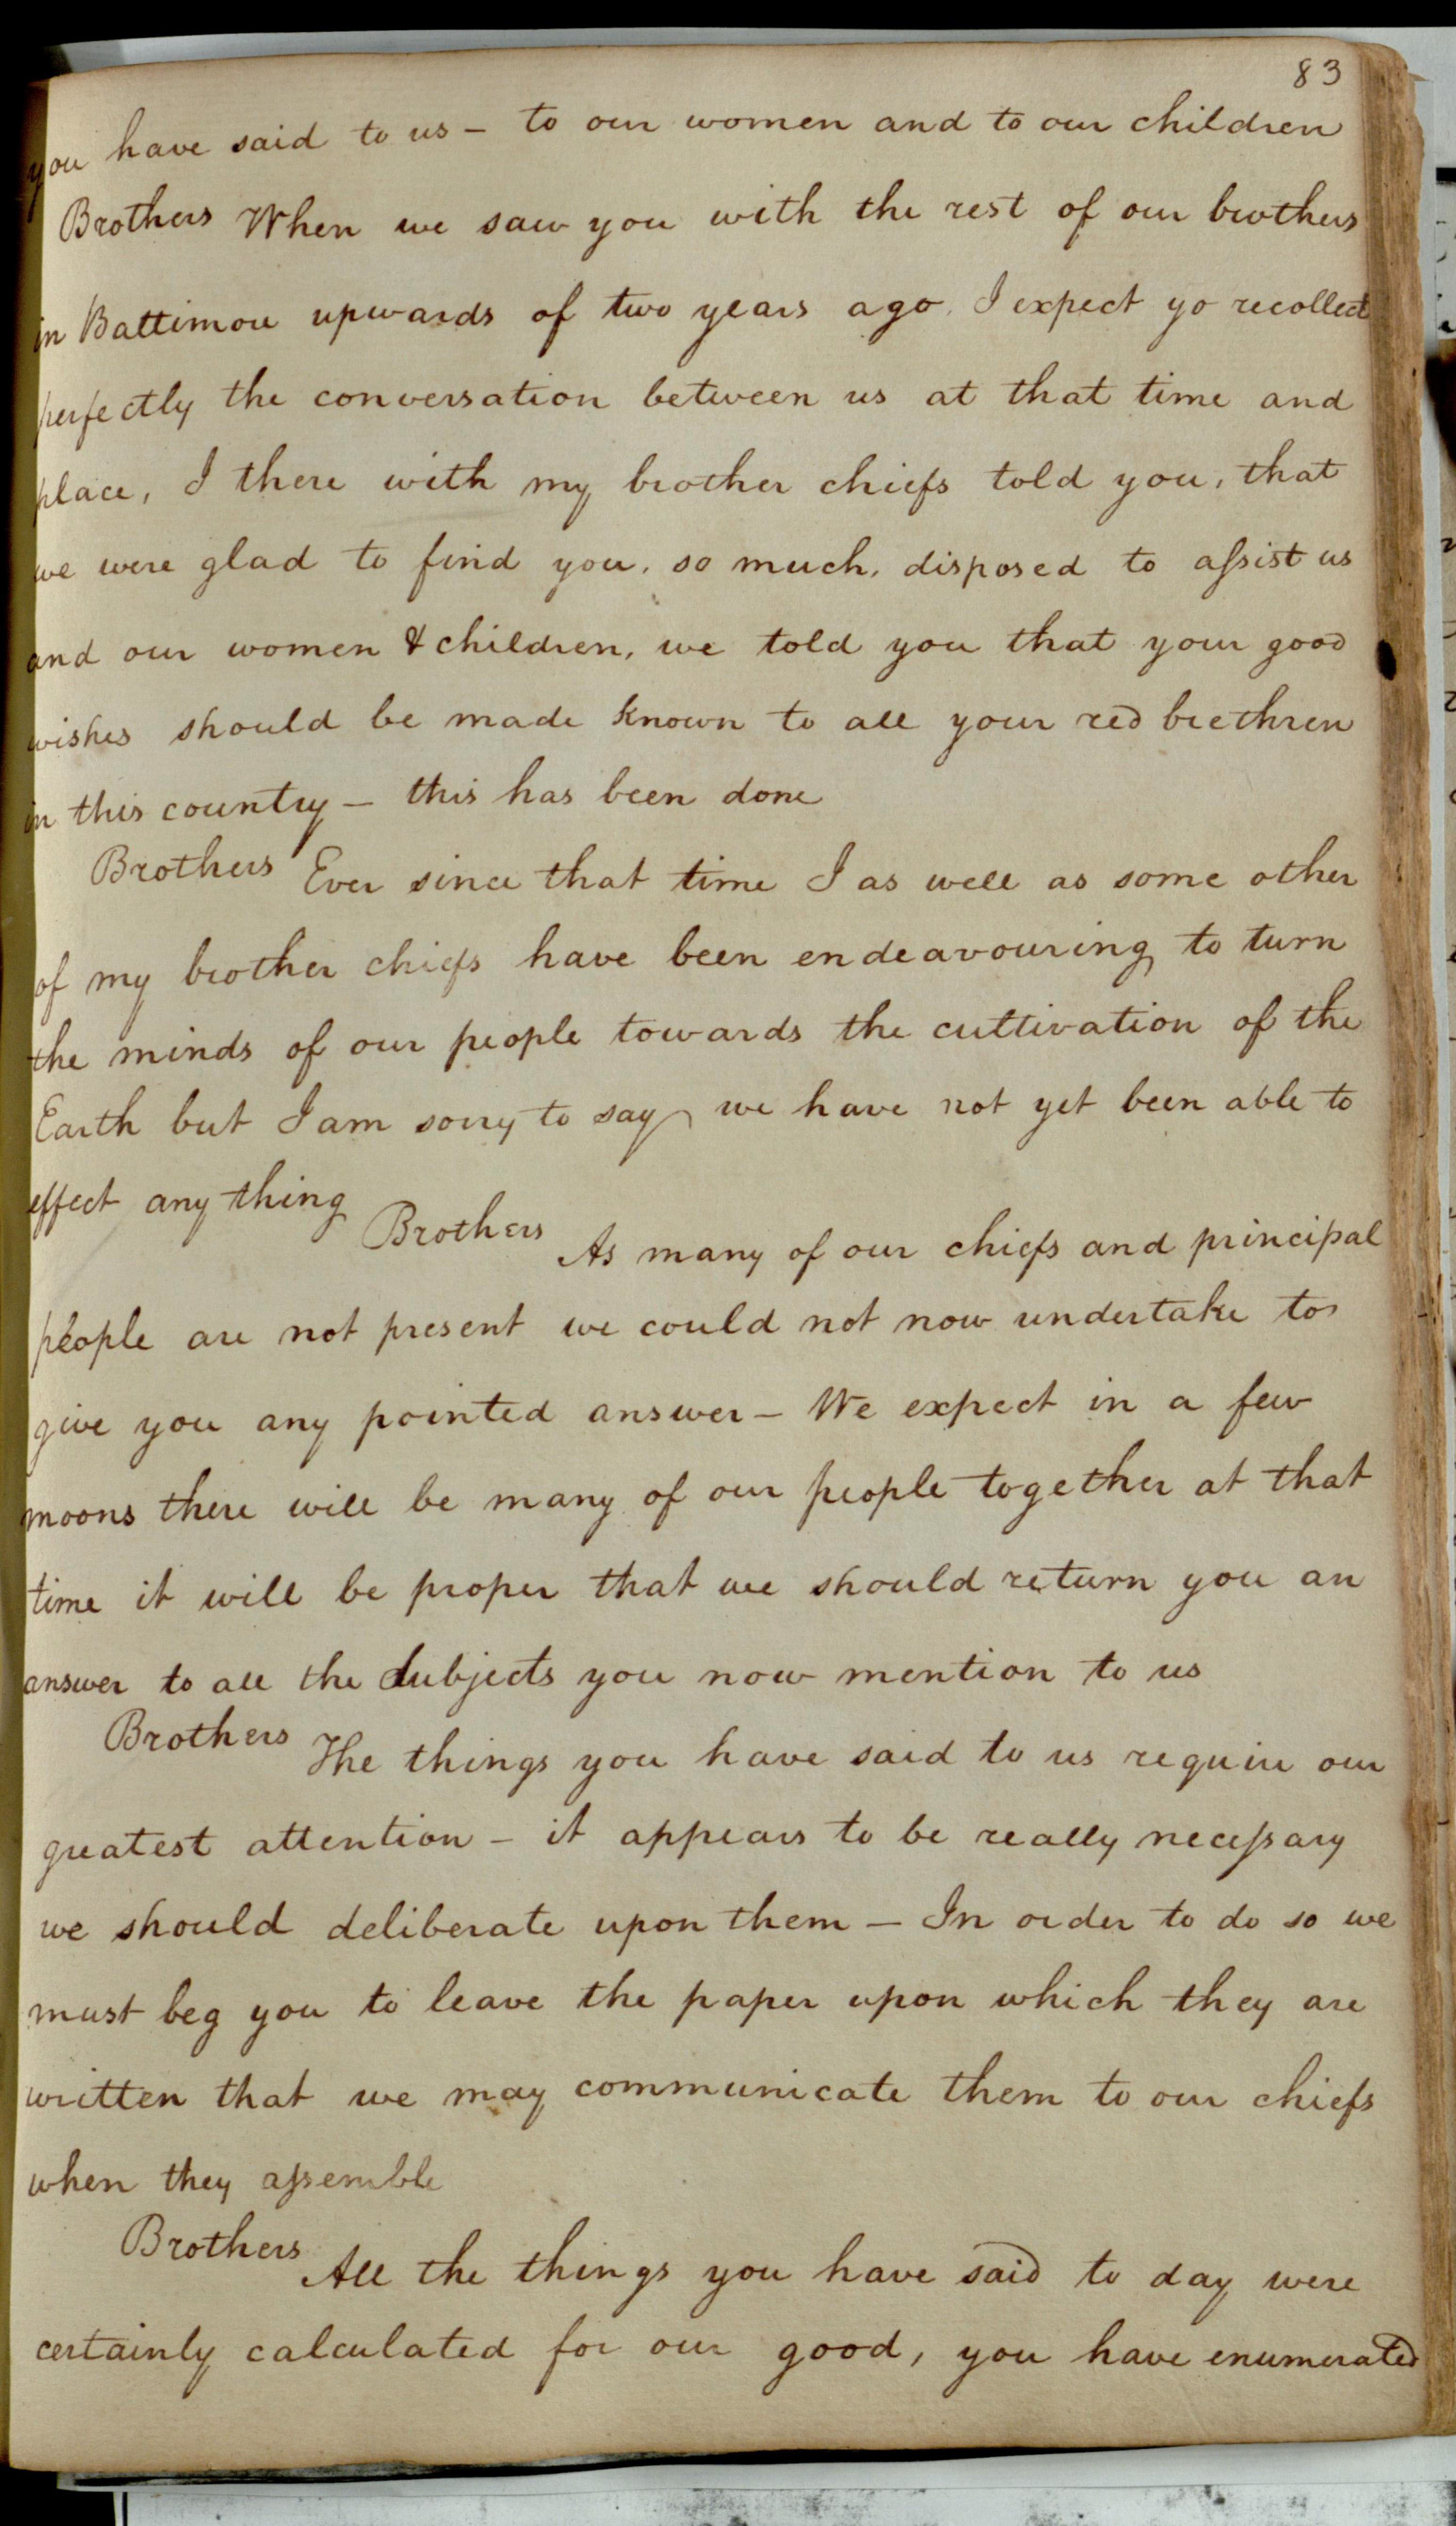 83
you have said to us – to our women and to our children
Brothers When we saw you with the rest of our brothers
in Baltimore upwards of two years ago, I expect yo recollect
perfectly the conversation between us at that time and
place, I there with my brother chiefs told you, that
we were glad to find you, so much, disposed to assist us
and our women & children, we told you that your good
wishes should be made known to all your red brethren
in this country – this has been done
Brothers Ever since that time I as well as some other
of my brother chiefs have been endeavouring to turn
the minds of our people towards the cultivation of the
Earth but I am sorry to say we have not yet been able to
effect any thing Brothers As many of our chiefs and principal
people are not present we could not now undertake to
give you any pointed answer – We expect in a few
moons there will be many of our people together at that
time it will be proper that we should return you an
answer to all the Subjects you now mention to us
Brothers The things you have said to us require our
greatest attention – it appears to be really necessary
we should deliberate upon them – In order to do so we
must beg you to leave the paper upon which they are
written that we may communicate them to our chiefs
when they assemble
Brothers All the things you have said to day were
certainly calculated for our good, you have enumerated